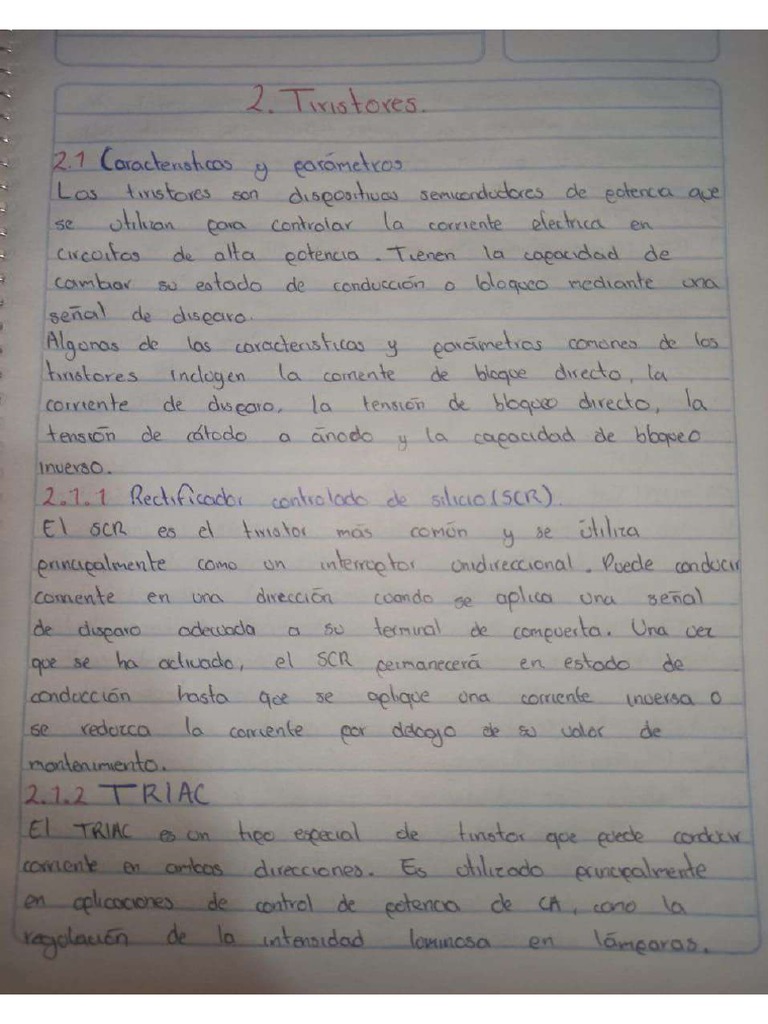 2. Tiristores.
2.1 Caracteristicas y parámetros
Los tiristores son dispositivos semiconductores de potencia que
se utilizan para controlar la corriente electrica en
circuitos de alta potencia. Tienen la capacidad de
cambiar su estado de conducción o bloqueo mediante una
señal de disparo.
Algunas de las caracteristicas y parámetros comunes de los
tiristores incluyen la corriente de bloque directo, la
corriente de disparo, la tensión de bloqueo directo, la
tensión de cátodo a ánodo y la capacidad de bloqueo
inverso.
2.1.1 Rectificador controlado de silicio (SCR).
El SCR es el tiristor más común y se útiliza
principalmente como un interruptor unidireccional. Puede conducir
corriente en una dirección cuando se aplica una señal
de disparo adecuada a su terminal de compuerta. Una vez
que se ha activado, el SCR permanecerá en estado de
conducción hasta que se aplique una corriente inversa o
se reduzca la corriente por debajo de su valor de
mantenimiento.
2.1.2 TRIAC
El TRIAC es un tipo especial de tiristor que puede conducir
corriente en ambas direcciones. Es utilizado principalmente
en aplicaciones de control de potencia de CA, como la
regulación de la intensidad luminosa en lámparas.